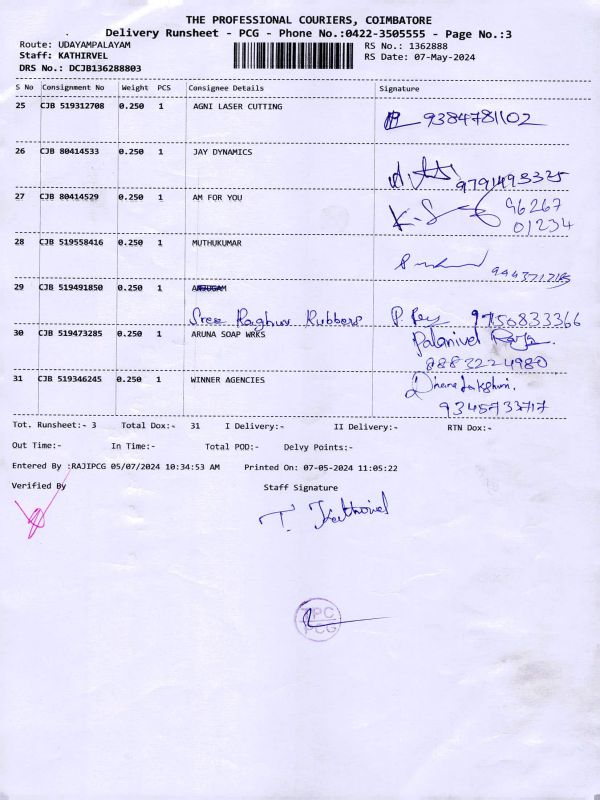 THE PROFESSIONAL COURIERS, COIMBATORE
Delivery Runsheet - PCG - Phone No.:0422-3505555 - Page No.:3
Route: UDAYAMPALAYAM RS No.: 1362888
Staff: KATHIRVEL RS Date: 07-May-2024
DRS No.: DCJB136288803
S No Consignment No Weight PCS Consignee Details Signature
25 CJB 519312708 0.250 1 AGNI LASER CUTTING
9384781102
26 CJB 80414533 0.250 1 JAY DYNAMICS
9791493325
27 CJB 80414529 0.250 1 AM FOR YOU
96267
01234
28 CJB 519558416 0.250 1 MUTHUKUMAR
29 CJB 519491850 0.250 1
Sree Raghav Rubbers 9750833366
30 CJB 519473285 0.250 1 ARUNA SOAP WRKS Palanivel Raja.
8883224980
31 CJB 519346245 0.250 1 WINNER AGENCIES Dhanalakshmi.
9345733717
Tot. Runsheet:- 3 Total Dox:- 31 I Delivery:- II Delivery:- RTN Dox:-
Out Time:- In Time:- Total POD:- Delvy Points:-
Entered By :RAJIPCG 05/07/2024 10:34:53 AM Printed On: 07-05-2024 11:05:22
Verified By Staff Signature
T. Kathirvel
TPC
PCG